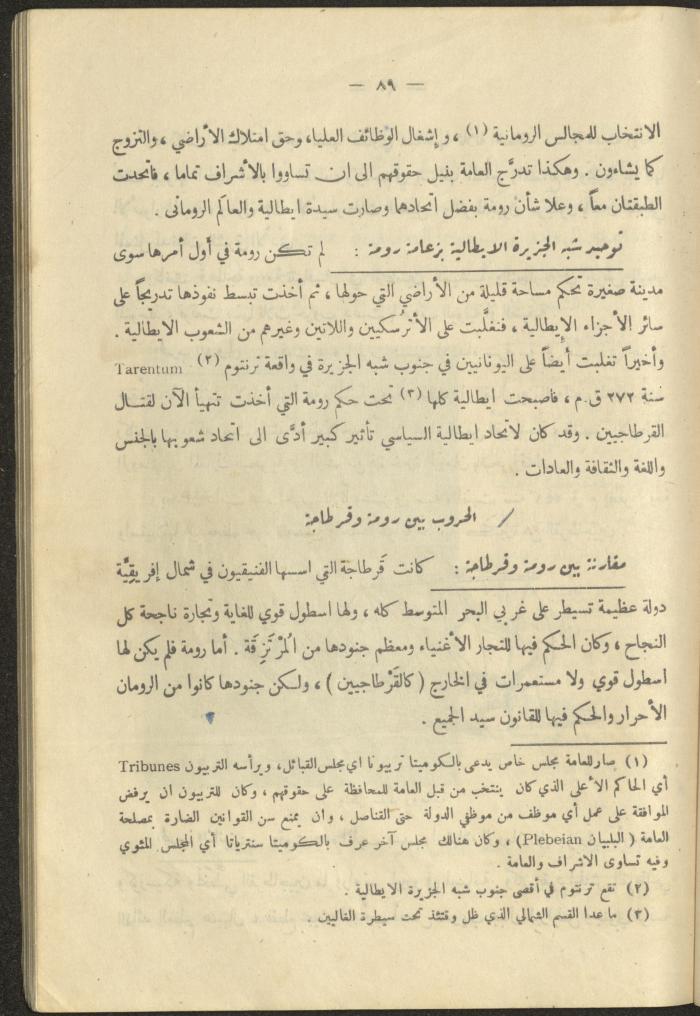 — ٨٩ —
الانتخاب للمجالس الرومانية (١) ، وإشغال الوظائف العليا، وحق امتلاك الأراضي ، والتزوج
كما يشاءون . وهكذا تدرَّج العامة بنيل حقوقهم الى ان تساووا بالأشراف تماما ، فاتحدت
الطبقتان معاً ، وعلا شأن رومة بفضل اتحادهما وصارت سيدة ايطالية والعالم الروماني .
توحيد شبه الجزيرة الايطالية بزعامة رومة : لم تكن رومة في أول أمرها سوى
مدينة صغيرة تحكم مساحة قليلة من الأراضي التي حولها ، ثم أخذت تبسط نفوذها تدريجاً على
سائر الأجزاء الإيطالية ، فتغلَّبت على الأترُسكيين واللاتين وغيرهم من الشعوب الايطالية .
وأخيراً تغلبت أيضاً على اليونانيين في جنوب شبه الجزيرة في واقعة ترنتوم (٢) Tarentum
سنة ٢٧٢ ق.م ، فاصبحت ايطالية كلها (٣) تحت حكم رومة التي أخذت تتهيأ الآن لقتال
القرطاجيين . وقد كان لاتحاد ايطالية السياسي تأثير كبير أدَّى الى اتحاد شعوبها بالجنس
واللغة والثقافة والعادات .
/ الحروب بين رومة وقرطاجة
مقارنة بين رومة وقرطاجة : كانت قَرطاجَة التي اسسها الفنيقيون في شمال إفريقيَّة
دولة عظيمة تسيطر على غربي البحر المتوسط كله ، ولها اسطول قوي للغاية وتجارة ناجحة كل
النجاح ، وكان الحكم فيها للتجار الأغنياء ومعظم جنودها من المُرْتَزِقَة . أما رومة فلم يكن لها
اسطول قوي ولا مستعمرات في الخارج ( كالقَرْطاجيين ) ، ولكن جنودها كانوا من الرومان
الأحرار والحكم فيها للقانون سيد الجميع .
(١) صار للعامة مجلس خاص يدعى بالكوميتا تريبوتا اي مجلس القبائل ، ويرأسه التربيون Tribunes
أي الحاكم الأعلى الذي كان ينتخب من قبل العامة للمحافظة على حقوقهم ، وكان للتربيون ان يرفض
الموافقة على عمل أي موظف من موظفي الدولة حتى القناصل ، وان يمنع سن القوانين الضارة بمصلحة
العامة ( البلبيان Plebeian) ، وكان هنالك مجلس آخر عرف بالكوميتا سنترياتا أي المجلس المئوي
وفيه تساوى الاشراف والعامة .
(٢) تقع ترنتوم في أقصى جنوب شبه الجزيرة الايطالية .
(٣) ما عدا القسم الشمالي الذي ظل وقتئذ تحت سيطرة الغاليين .